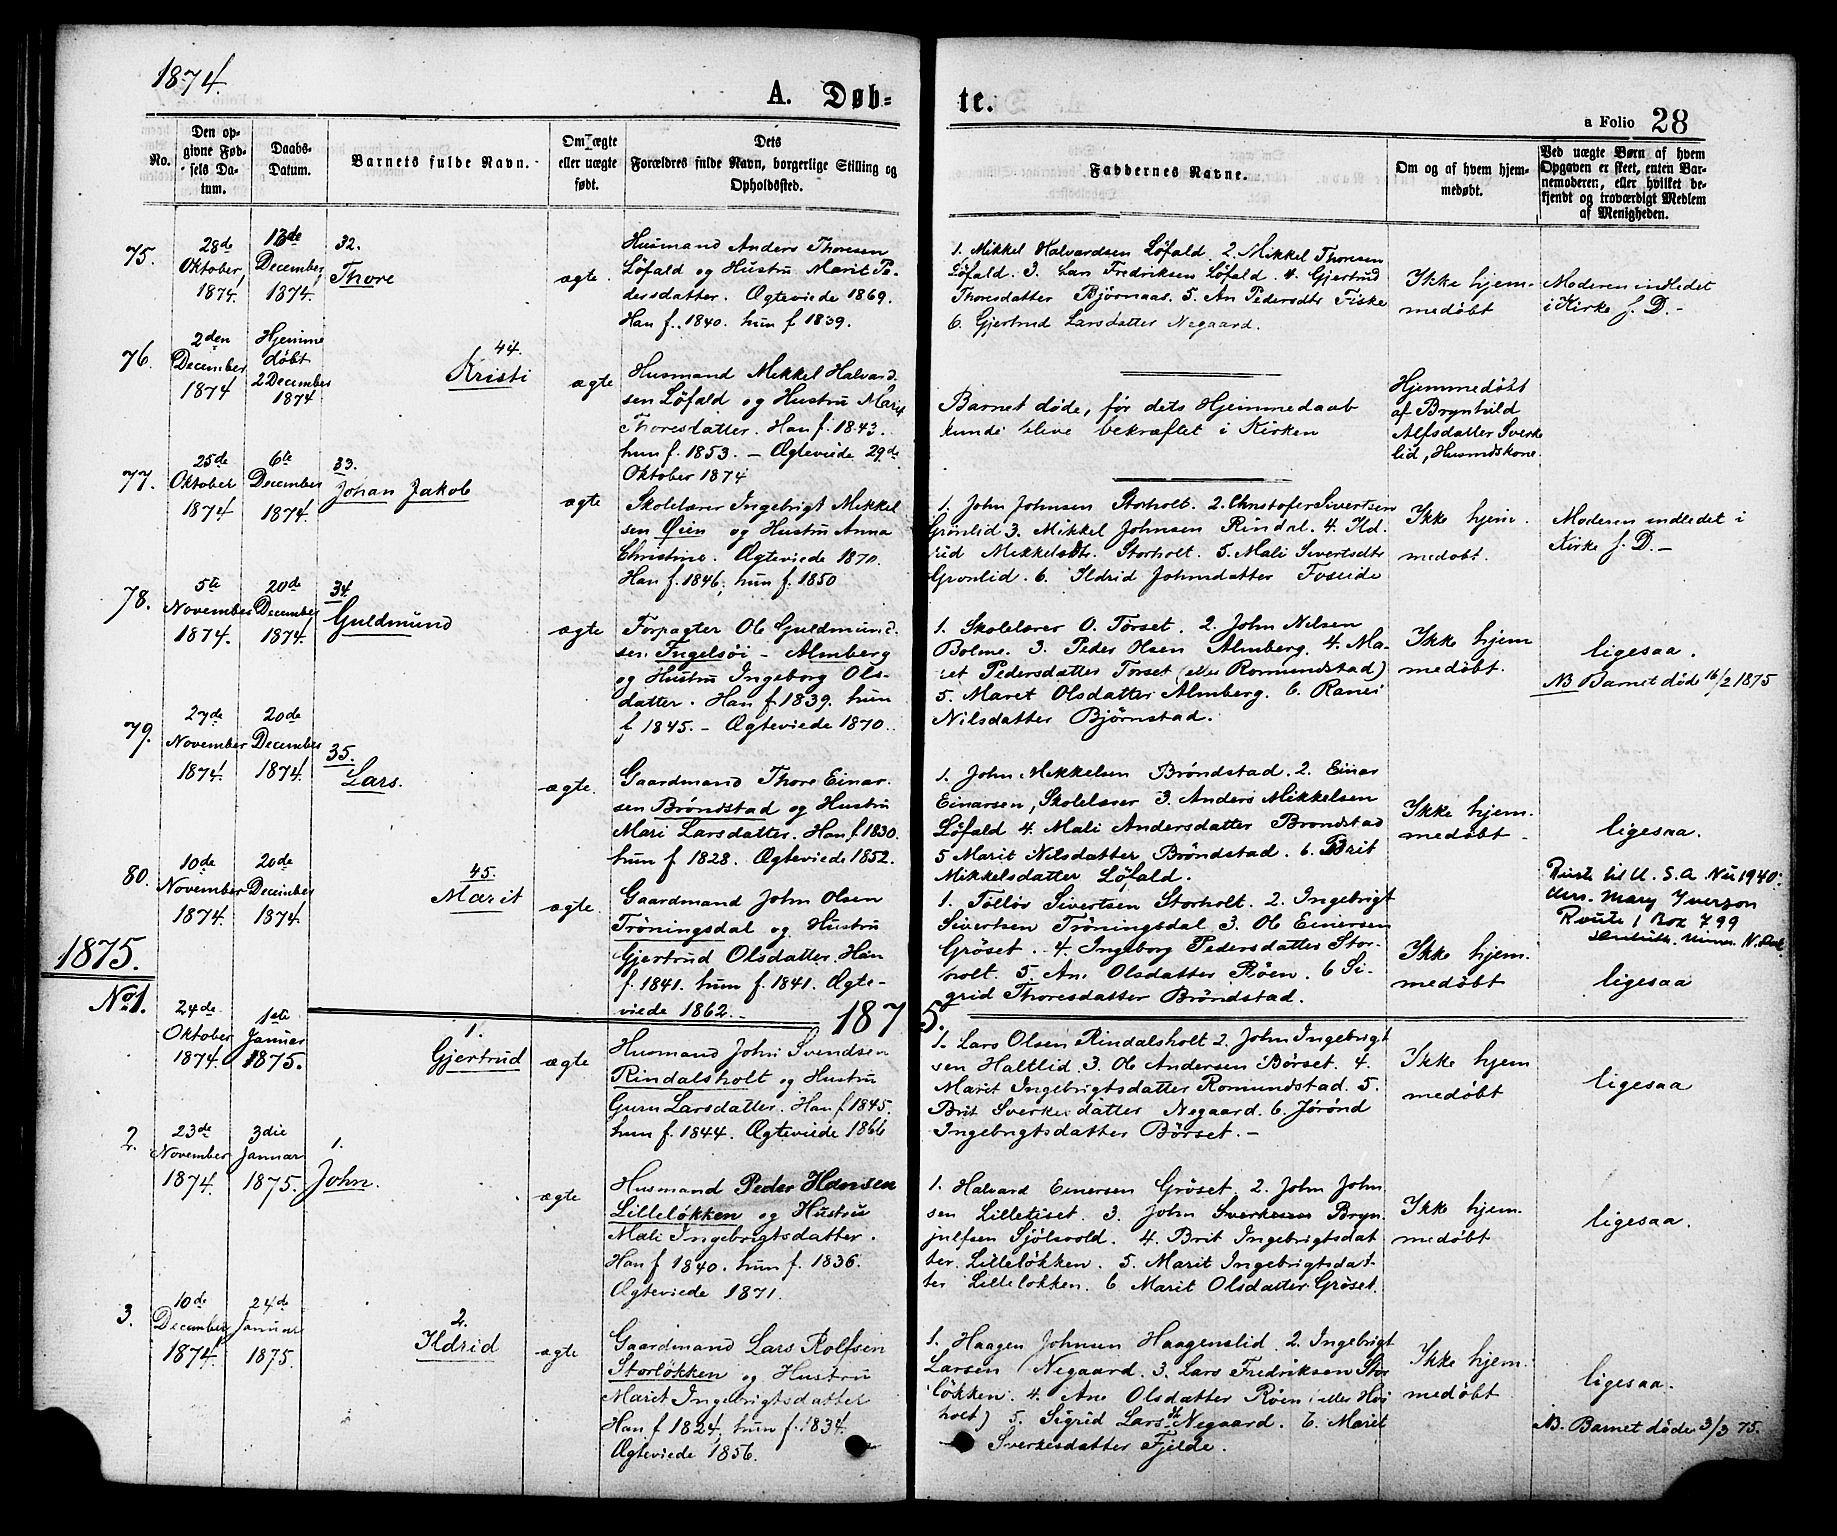 1874.
A. Døb-
te.
a Folio 28
No.
Den op-
givne Fød-
sels Da-
tum.
Daabs-
Datum.
Barnets fulde Navn.
Om ægte
eller uægte
født.
Dets
Forældres fulde Navn, borgerlige Stilling og
Opholdssted.
Faddernes Navne.
Om og af hvem hjem-
medøbt.
Ved uægte Børn af hvem
Opgaven er skeet, enten Bar-
nemoderen, eller hvilket be-
kjendt og troværdigt Medlem
af Menigheden.
75.
28de
Oktober
1874.
13de
December
1874.
32.
Thore
ægte.
Husmand Anders Thoresen
Løfald og Hustru Marit Pe-
dersdatter. Ægteviede 1869.
Han f. 1840. hun f 1839.
1. Mikkel Halvardsen Løfald. 2. Mikkel Thoresen
Løfald. 3. Lars Fredriksen Løfald. 4. Gjertrud
Thoresdatter Bjørnaas. 5. An Pedersdtr Fiske
6. Gjertrud Larsdatter Negaard.
Ikke hjem-
medøbt
Moderen indledet
i Kirke f. D. -
76.
2den
December
1874
Hjemme
døbt
2 December
1874
44.
Kristi
ægte
Husmand Mikkel Halvard
sen Løfald og Hustru Marit
Thoresdatter. Han f. 1843.
hun f. 1853. - Ægteviede 29de
Oktober 1874
Barnet døde, før dets Hjemmedaab
kunde blive bekræftet i Kirken
Hjemmedøbt
af Brynhild
Alfsdatter Sverke
lid, Husmdskone.
77.
25de
Oktober
1874
6te
December
1874.
33.
Johan Jakob
ægte
Skolelærer Ingebrigt Mikkel
sen Øien og Hustru Anna
Christine. Ægteviede 1870.
Han f. 1846; hun f. 1850
1. John Johnsen Storholt. 2. Christofer Sivertsen
Grønlid 3. Mikkel Johnsen Rindal. 4. Ild-
rid Mikkelsdtr. Storholt. 5. Mali Sivertsdtr
Grønlid. 6. Ildrid Johnsdatter Foseide
Ikke hjem-
medøbt.
Moderen indledet i
Kirke f. D. -
78.
5te
November
1874.
20de
December
1874.
34.
Guldmund
ægte
Forpagter Ole Guldmund-
sen Ingelsøi - Almberg
og Hustru Ingeborg Ols-
datter. Han f. 1839. hun
f. 1845. - Ægteviede 1870.
1. Skolelærer O. Torset. 2. John Nilsen
Bolme. 3. Peder Olsen Almberg. 4. Ma-
ret Pedersdatter Torset (eller Romundstad)
5. Maret Olsdatter Almberg. 6. Ranei
Nilsdatter Bjørnstad.
Ikke hjem
medøbt.
ligesaa.
NB Barnet døde 16/2 1875
79.
27de
November
1874.
20de
December
1874.
35.
Lars.
ægte.
Gaardmand Thore Einar-
sen Brøndstad og Hustru
Mari Larsdatter. Han f. 1830.
hun f 1828. Ægteviede 1852.
1. John Mikkelsen Brøndstad. 2. Einar
Einarsen, Skolelærer 3. Anders Mikkelsen
Løfald 4. Mali Andersdatter Brøndstad
5 Marit Nilsdatter Brøndstad. 6. Brit
Mikkelsdatter Løfald.
Ikke hjem.
medøbt -
ligesaa.
80.
10de
November
1874.
20de
December
1874.
45.
Marit
ægte.
Gaardmand John Olsen
Trøningsdal og Hustru
Gjertrud Olsdatter. Han
f. 1841. hun f. 1841. Ægte-
viede 1862. -
1. Tølløv Sivertsen Storholt. 2. Ingebrigt
Sivertsen Trøningsdal 3. Ole Einersen
Grøset. 4. Ingeborg Pedersdatter Stor-
holt. 5. Ane Olsdatter Røen. 6 Si-
grid Thoresdatter Brøndstad.
Ikke hjem.
medøbt
Reiste til U. S. A. Nu 1940:
Mrs. Mary Iverson
Route 1 Box 799
ligesaa
1875.
1875.
No 1.
24de
Oktober
1874.
1ste
Januar
1875.
1.
Gjertrud
ægte
Husmand John Svendsen
Rindalsholt og Hustru
Guru Larsdatter. Han f 1845.
hun f. 1844. Ægteviede 1866
1. Lars Olsen Rindalsholt 2. John Ingebrigt
sen Haltlid. 3. Ole Andersen Børset. 4.
Marit Ingebrigtsdatter Romundstad. 5.
Brit Sverkesdatter Negaard. 6. Jørønd
Ingebrigtsdatter Børset. -
Ikke hjem
medøbt
ligesaa
2.
23de
November
1874.
3die
Januar
1875.
1.
John.
ægte
Husmand Peder Hansen
Lilleløkken og Hustru
Mali Ingebrigtsdatter.
Han f 1840. hun f. 1836.
Ægteviede 1871.
1. Halvard Einersen Grøset. 2. John John
sen Lilletiset. 3. John Sverkesen Bryn
julfsen Sjølsvold. 4. Brit Ingebrigtsdat
ter Lilleløkken. 5. Marit Ingebrigtsdat-
ter Lilleløkken. 6. Marit Olsdatter Grøset.
Ikke hjem-
medøbt
ligesaa.
3.
10de
December
1874.
24de
Januar
1875.
2.
Ildrid
ægte
Gaardmand Lars Rolfsen
Storløkken og Hustru
Marit Ingebrigtsdatter
Han f 1824, hun f. 1834.
Ægteviede 1856.
1. Haagen Johnsen Haagenslid. 2. Ingebrigt
Larsen Negaard. 3. Lars Fredriksen Stor
løkken. 4. Ane Olsdatter Røen (eller Høi
holt) 5. Sigrid Larsdtr Negaard. 6. Marit
Sverkesdatter Fjelde.
Ikke hjem.
medøbt
ligesaa.
NB. Barnet døde 3/3 75.